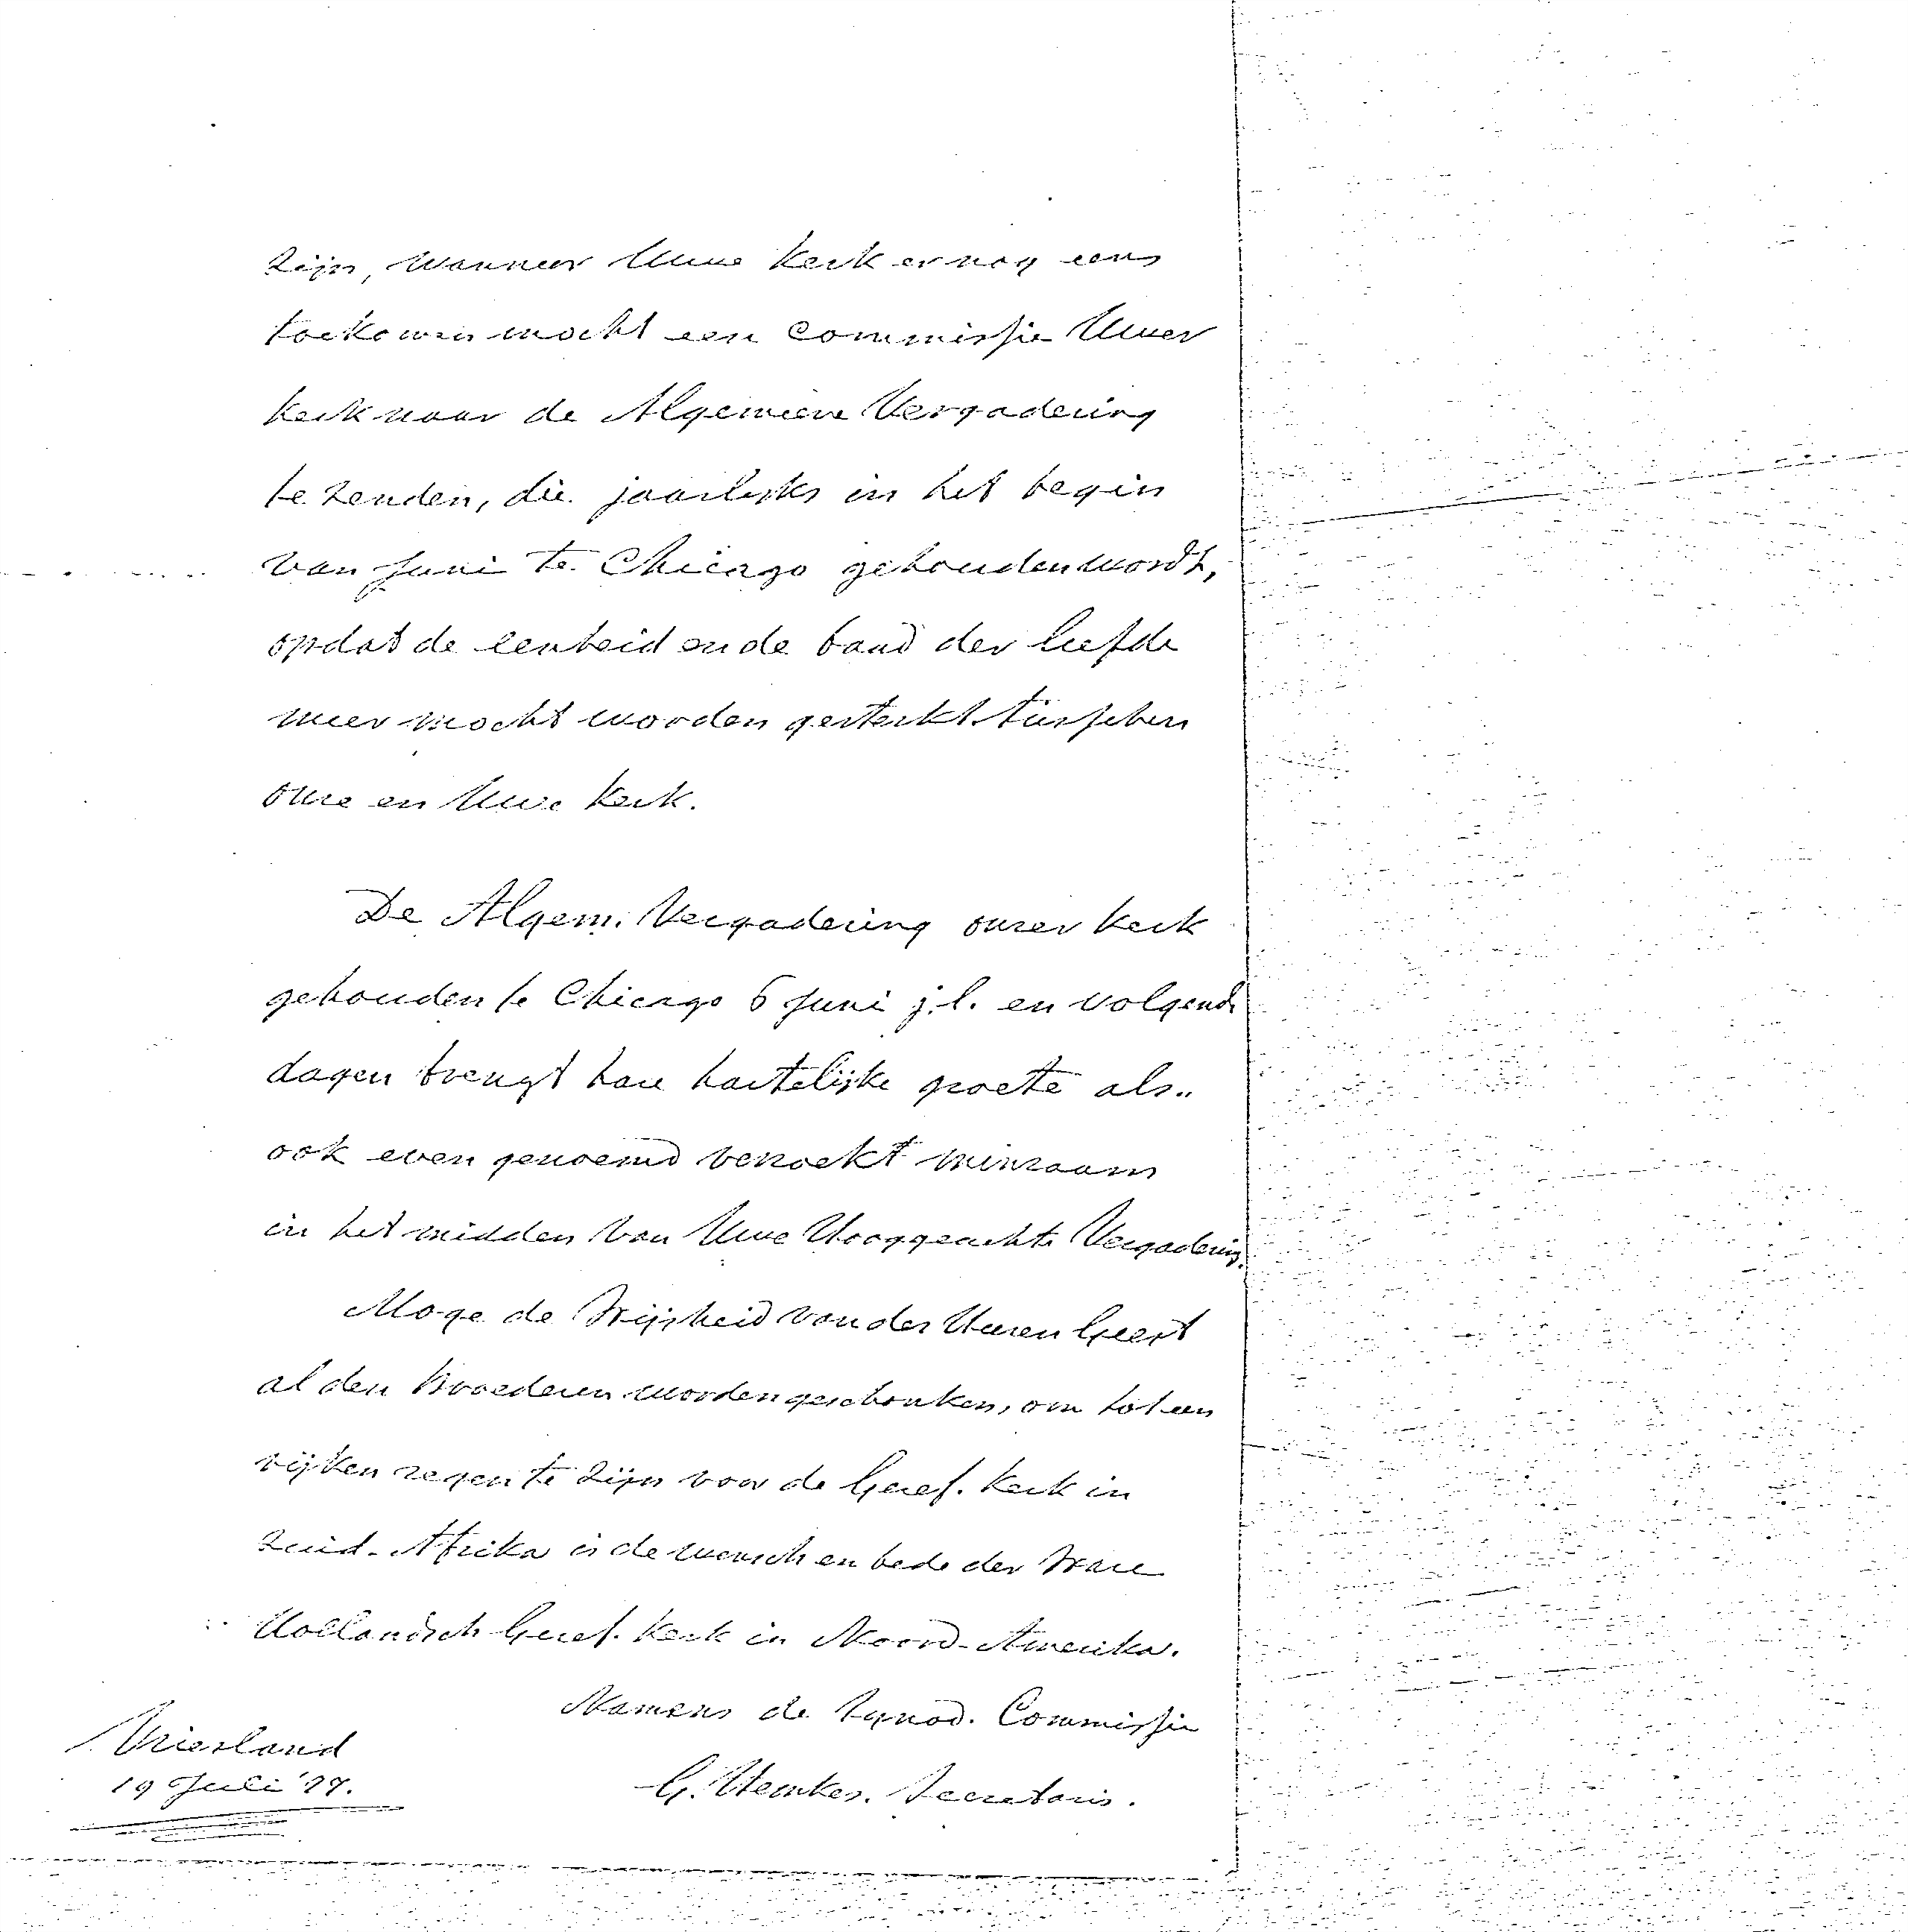 zijn, wanneer Uwe kerk er nog eens
toekomen mocht een Commissie Uwer
kerk naar de Algemeene Vergadering
te zenden, die jaarlijks in het begin
van Juni te Chicago gehouden wordt,
opdat de eenheid en de band der liefde
meer mocht worden gesterkt tusschen
onze en Uwe kerk.
De Algem. Vergadering onzer kerk
gehouden te Chicago 6 Juni j.l. en volgende
dagen brengt hare hartelijke groete als
ook even genoemd verzoekt minzaam
in het midden van Uwe Hooggeachte Vergadering.
Moge de Wijsheid van des Heeren Geest
al den Broederen worden geschonken, om tot een
rijken zegen te zijn voor de Geref. kerk in
Zuid-Afrika is de wensch en bede der Ware
Hollandsch Geref. kerk in Noord-Amerika.
Namens de Synod. Commissie
Vriesland
19 Juli '77.
G. Hemkes. Secretaris.